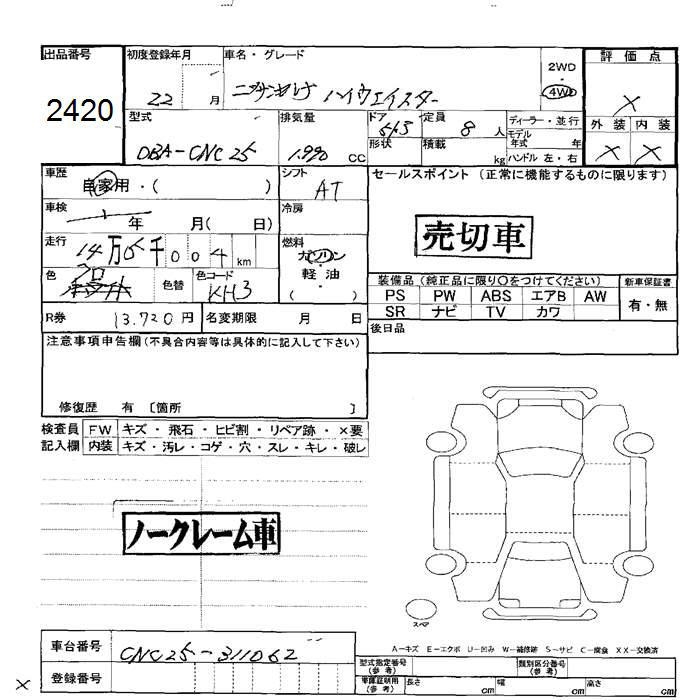 出品番号 初度登録年月 車名・グレード 評価点
2420 22 月 ハイウェイスター 2WD・4WD ×
型式 排気量 ドア 定員 ディーラー・並行 外装 内装
DBA-CNC25 1.990 CC 形状 8 人 積載 kg モデル年式 年 ハンドル 左・右 × ×
車歴 シフト セールスポイント (正常に機能するものに限ります)
自家用・( ) AT
車検 年 月( 日) 冷房 売切車
走行 14万05千004km 燃料 ガソリン
軽油・( )
色 クロ 色替 色コード KH3
装備品 (純正品に限り〇をつけてください) 新車保証書
PS PW ABS エアB AW 有・無
SR ナビ TV カワ
R券 13.720円 名変期限 月 日 後日品
注意事項申告欄(不具合内容等は具体的に記入して下さい)
修復歴 有 〔箇所 〕
検査員 FW キズ・飛石・ヒビ割・リペア跡・×要
記入欄 内装 キズ・汚レ・コゲ・穴・スレ・キレ・破レ
ノークレーム車
スペア
A-キズ E-エクボ U-凹み W-補修跡 S-サビ C-腐食 XX-交換済
車台番号 CNC25-311062
登録番号
型式指定番号(参考) 類別区分番号(参考)
車庫証明用(参考) 長さ cm 幅 cm 高さ cm
×